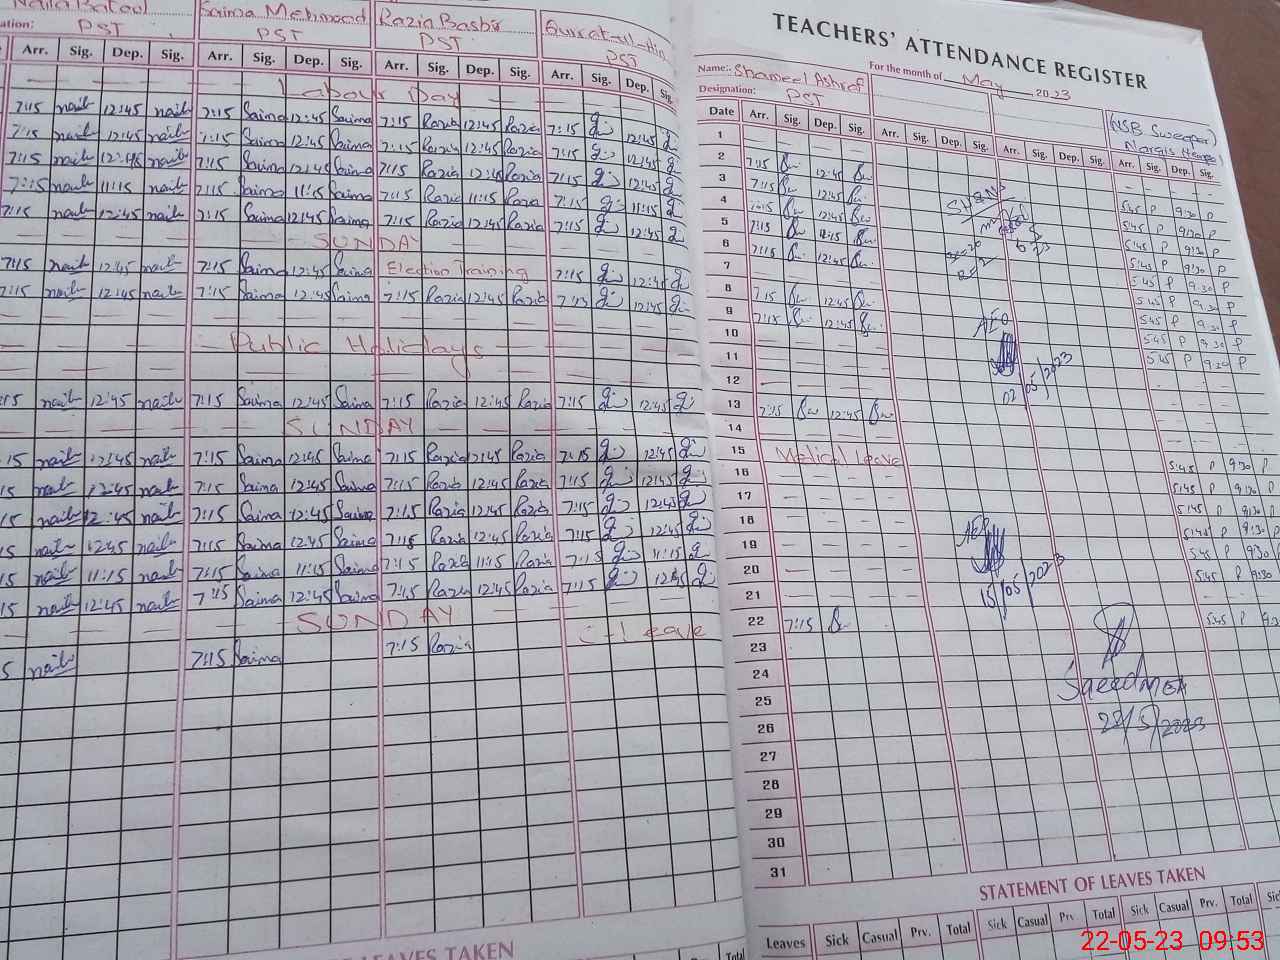 Naila Batool Saima Mehmood Razia Bashir Qurrat-ul-Ain
ation: PST PST PST PST
Arr. Sig. Dep. Sig. Arr. Sig. Dep. Sig. Arr. Sig. Dep. Sig. Arr. Sig. Dep. Sig.
Labour Day
7:15 naila 12:45 naila 7:15 Saima 12:45 Saima 7:15 Razia 12:45 Razia 7:15 12:45
7:15 naila 12:45 naila 7:15 Saima 12:45 Saima 7:15 Razia 12:45 Razia 7:15 12:45
7:15 naila 12:45 naila 7:15 Saima 12:45 Saima 7:15 Razia 12:45 Razia 7:15 12:45
7:15 naila 11:15 naila 7:15 Saima 11:15 Saima 7:15 Razia 11:15 Razia 7:15 11:15
7:15 naila 12:45 naila 7:15 Saima 12:45 Saima 7:15 Razia 12:45 Razia 7:15 12:45
SUNDAY
7:15 naila 12:45 naila 7:15 Saima 12:45 Saima Election Training 7:15 12:45
7:15 naila 12:45 naila 7:15 Saima 12:45 Saima 7:15 Razia 12:45 Razia 7:15 12:45
Public Holidays
:15 naila 12:45 naila 7:15 Saima 12:45 Saima 7:15 Razia 12:45 Razia 7:15 12:45
SUNDAY
15 naila 12:45 naila 7:15 Saima 12:45 Saima 7:15 Razia 12:45 Razia 7:15 12:45
15 naila 12:45 naila 7:15 Saima 12:45 Saima 7:15 Razia 12:45 Razia 7:15 12:45
15 naila 12:45 naila 7:15 Saima 12:45 Saima 7:15 Razia 12:45 Razia 7:15 12:45
15 naila 12:45 naila 7:15 Saima 12:45 Saima 7:15 Razia 12:45 Razia 7:15 12:45
15 naila 11:15 naila 7:15 Saima 11:15 Saima 7:15 Razia 11:15 Razia 7:15 11:15
15 naila 12:45 naila 7:15 Saima 12:45 Saima 7:15 Razia 12:45 Razia 7:15 12:45
SUNDAY
5 naila 7:15 Saima 7:15 Razia C-Leave
LEAVES TAKEN
Total
TEACHERS' ATTENDANCE REGISTER
Name: Shameel Ashraf For the month of May 2023
Designation: PST
(NSB Sweeper)
Date Arr. Sig. Dep. Sig. Arr. Sig. Dep. Sig. Arr. Sig. Dep. Sig. Arr. Sig. Dep. Sig.
1
2 7:15 12:45 5:45 P 9:30 P
3 7:15 12:45 5:45 P 9:30 P
4 7:15 12:45 5:45 P 9:30 P
5 7:15 11:15 5:45 P 9:30 P
6 7:15 12:45 5:45 P 9:30 P
7 5:45 P 9:30 P
8 7:15 12:45 5:45 P 9:30 P
9 7:15 12:45 5:45 P 9:30 P
10 AEO 5:45 P 9:30 P
11
12 02/05/2023
13 7:15 12:45
14
15 Medical Leave 5:45 P 9:30 P
16 5:45 P 9:30 P
17 5:45 P 9:30 P
18 AEO 5:45 P 9:30 P
19 5:45 P 9:30
20 15/05/2023 5:45 P 9:30
21
22 7:15 5:45 P
23
24 Saeed MEA
25
26 22/5/2023
27
28
29
30
31
STATEMENT OF LEAVES TAKEN
Leaves Sick Casual Prv. Total Sick Casual Prv. Total Sick Casual Prv. Total Sic
22-05-23 09:53